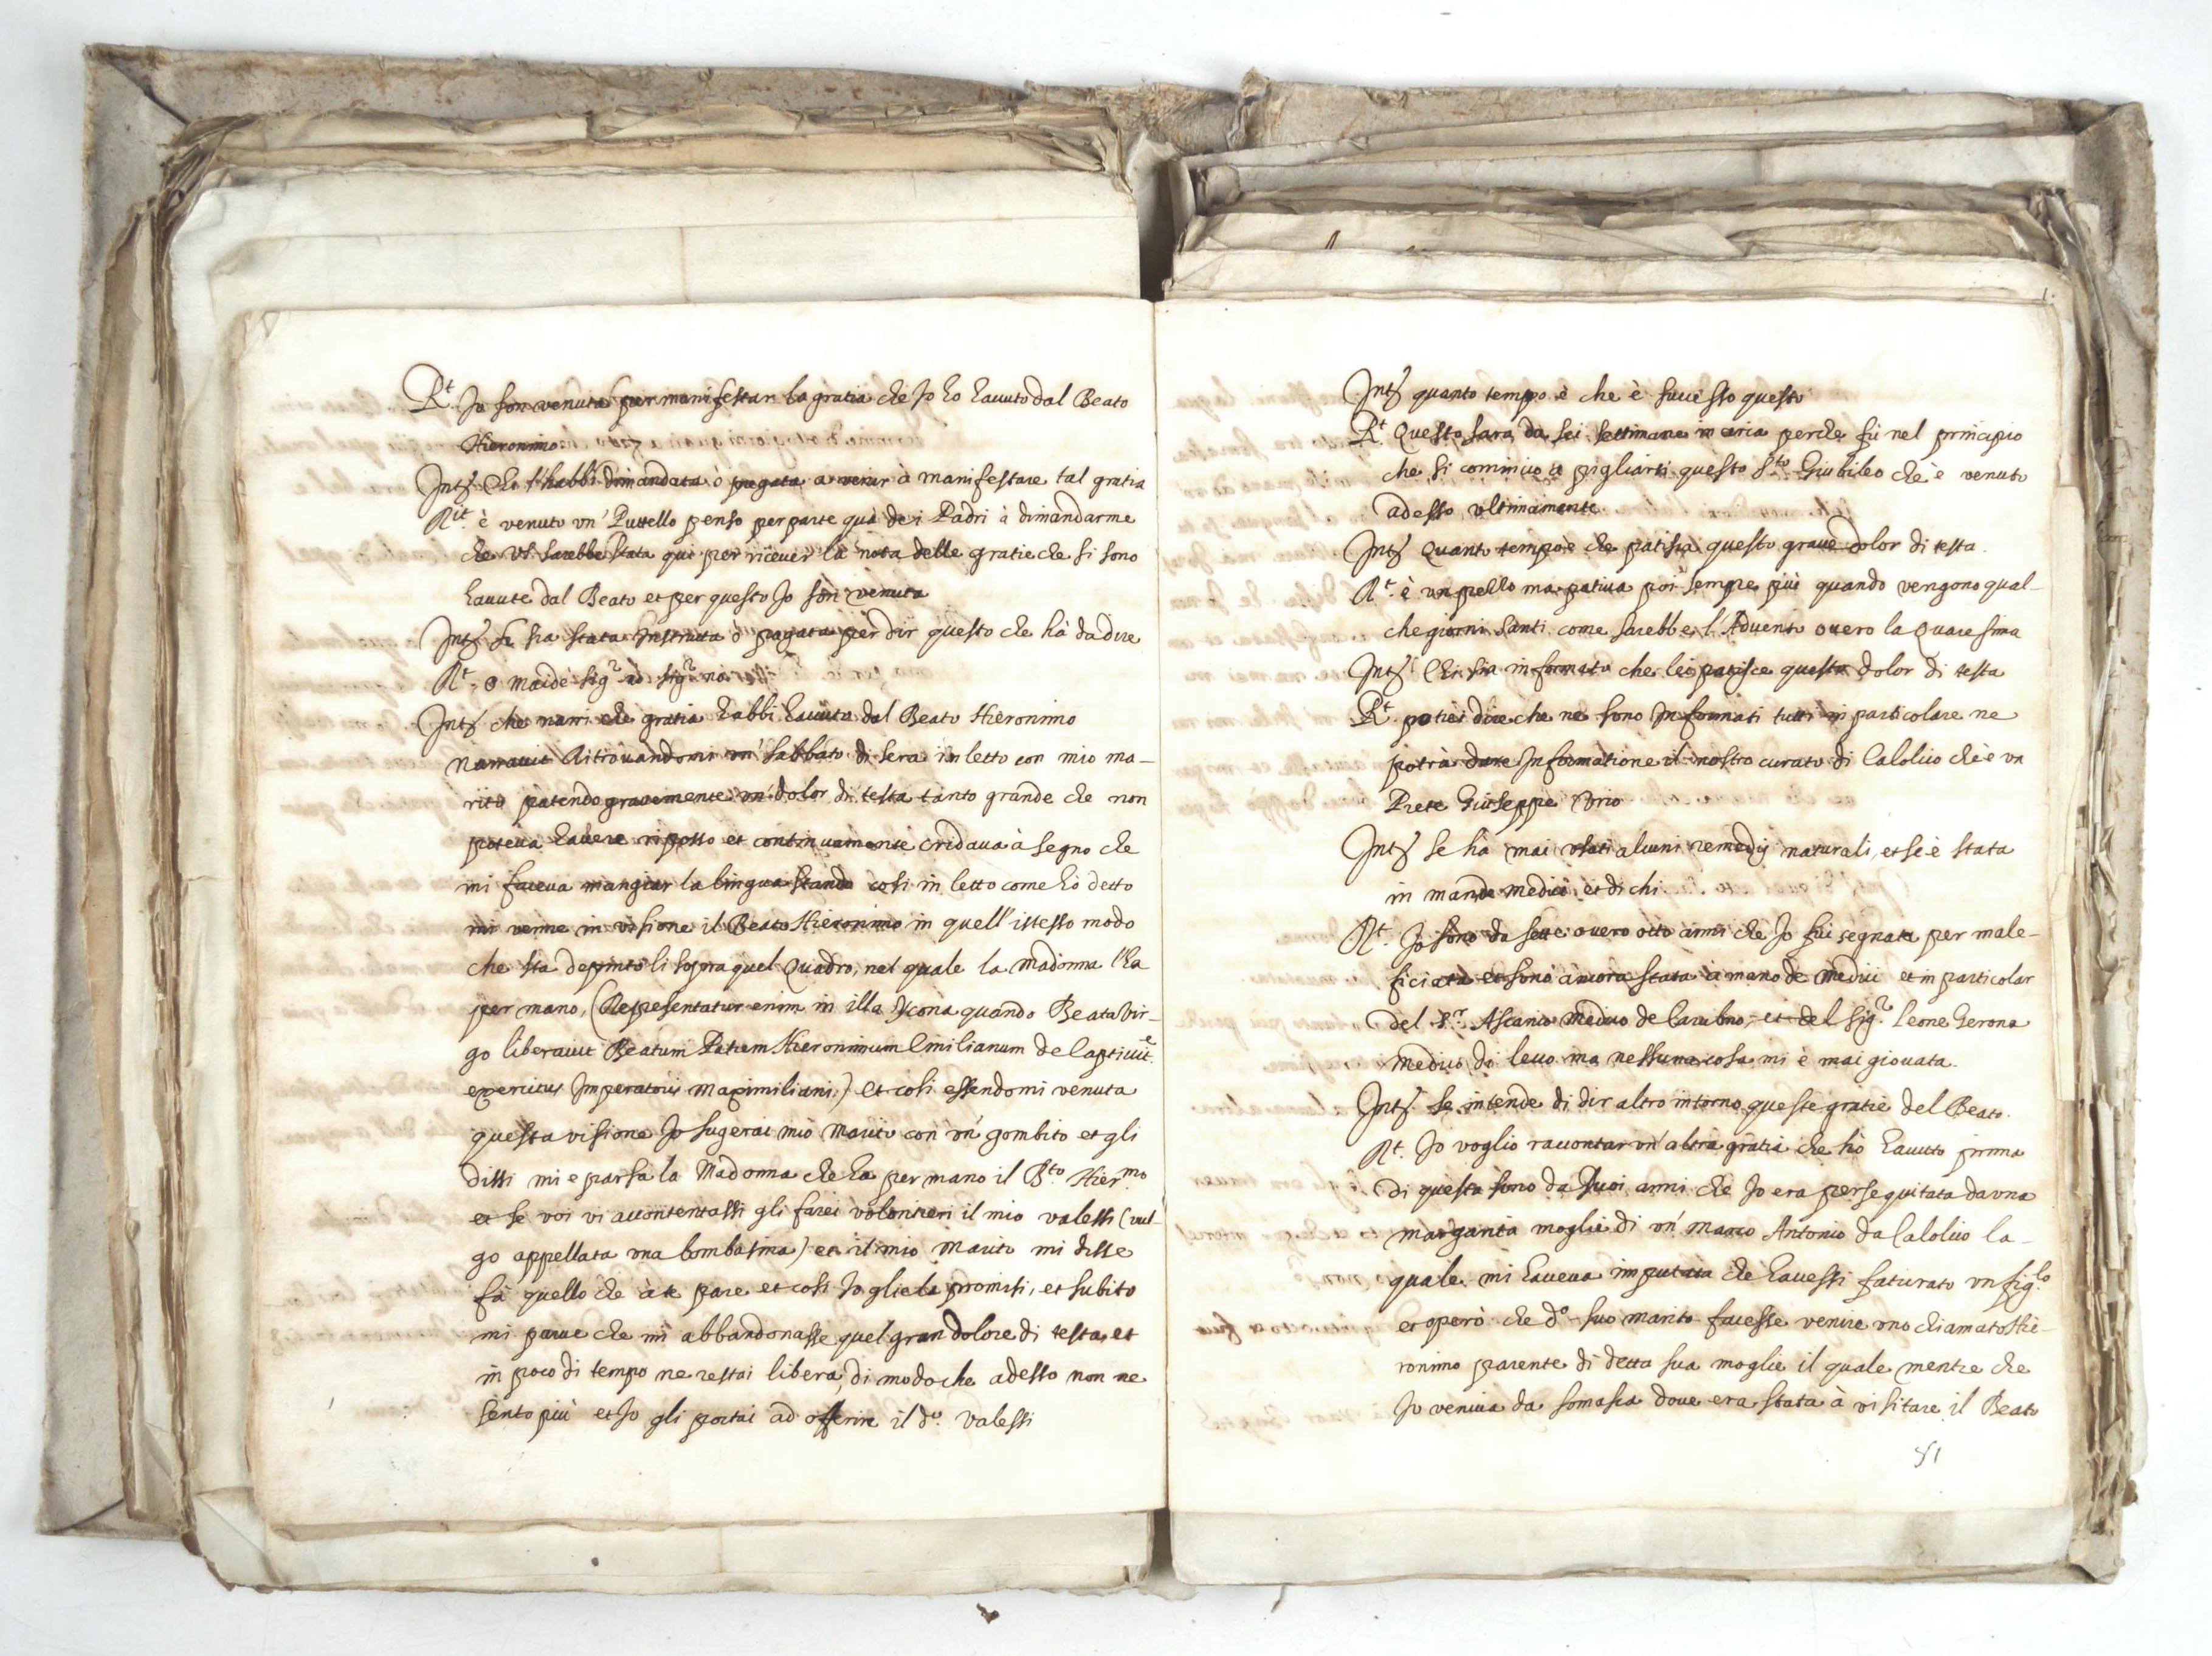 R.t Io son venuta per manifestar la gratia che Io ho hauuto dal Beato
Hieronimo
Int.s Chi l'habbi dimandata ò pregata a venir à manifestare tal gratia
R.it è venuto vn' Puttello penso per parte quà de i Padri à dimandarme
che VS. sarebbe stata quì per riceuer la nota delle gratie che si sono
hauute dal Beato et per questo Io son venuta
Int.s se sia stata instrutta ò pagata per dir questo che hà da dire
R.t o maidè sig.r nò sig.r nò
Int.s che narri che gratia habbi hauuta dal Beato Hieronimo
Narrauit Ritrouandomi vn' sabbato di sera in letto con mio ma-
rito patendo grauemente vn' dolor di testa tanto grande che non
poteua hauere riposso et continuamente cridaua à segno che
mi faceua mangiar la lingua stando cosi in letto come hò detto
mi venne in visione il Beato Hieronimo in quell'istesso modo
che sta depinto li sopra quel Quadro, nel quale la Madonna l'ha
per mano, (Representatur enim in illa Ycona quando Beata Vir-
go liberauit Beatum Patrem Hieronimum Emilianum de Captiuit.e
exercitus Imperatoris Maximiliani.) et cosi essendomi venuta
questa visione Io sugerai mio Marito con vn' gombito et gli
dissi mi e parsa la Madonna che ha per mano il B.to Hier.mo
et se voi vi accontentassi gli farei volontieri il mio valessi (vul-
go appellata vna bombasina) et il mio Marito mi disse
fà quello che à te pare et cosi Io gliela promisi, et subito
mi parue che mi abbandonasse quel gran dolore di testa, et
in poco di tempo ne restai libera, di modo che adesso non ne
sento più et Io gli portai ad offerire il d.o valessi
1.
Int.s quanto tempo è che è successo questo
R.t Questo sara da sei settimane in circa perche fù nel principio
che si cominciò a pigliarsi questo S.to Giubileo che è venuto
adesso vltimamente
Int.s Quanto tempo è che patisca questo graue dolor di testa.
R.t è vn pello ma patiua poi sempre più quando vengono qual-
che giorni santi come sarebbe l'Aduento ouero la Quaresima
Int.s Chi sia informato che lei patisce questo dolor di testa
R.t potrei dire che ne sono informati tutti in particolare ne
potrà dare Informatione il nostro curato di Calolcio che è vn
Prete Giuseppe Corio
Int.s se hà mai vsati alcuni remedij naturali, et se è stata
in mano de medici et di chi
R.t Io sono da sette ouero otto anni che Io fui segnata per male-
ficiata et sono ancora stata à mano de Medici et in particolar
del S.r Ascanio Medico de et del Sig.r Leone Gerona
Medico di leuo ma nessuna cosa mi è mai giouata.
Int.s se intende di dir altro intorno queste gratie del Beato.
R.t Io voglio raccontar vn' altra gratia che hò hauuto prima
di questa sono da duoi anni che Io era persequitata da vna
margarita moglie di vn' Marco Antonio da Calolcio la-
quale mi haueua imputata che hauessi faturato vn fig.lo
et operò che d.o suo marito facesse venire vno chiamato Hie-
ronimo parente di detta sua moglie il quale mentre che
Io veniua da somasca doue era stata à visitare il Beato
51